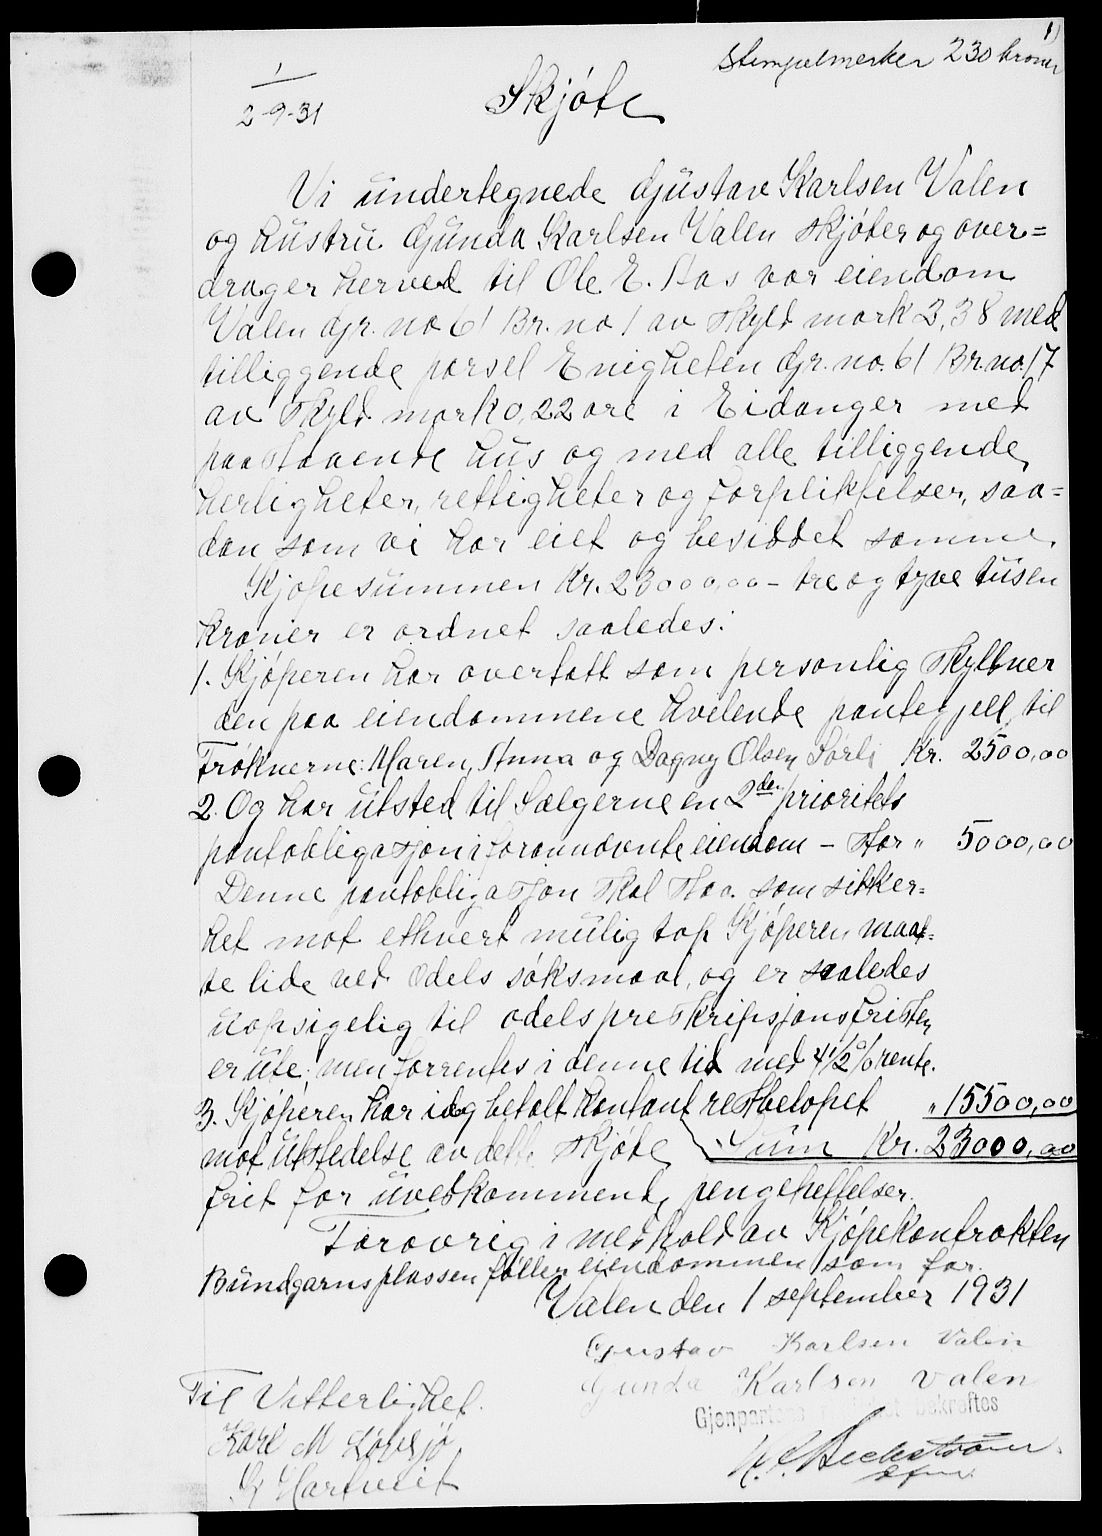 1)
Stempelmerker 230 kroner
1/
2-9-31
Skjøte
Vi undertegnede Gustav Karlsen Valen
og hustru Gunda Karlsen Valen skjøter og over=
drager herved til Ole E. Aas vor eiendom
Valen Gr. no 61 Br. no 1 av skyld mark 3,38 med
tilliggende parsel Enigheten Gr. no. 61 Br. no. 17
av skyld mark 0,22 øre i Eidanger med
paastaaende hus og med alle tilliggende
herligheter, rettigheter og forpliktelser, saa=
dan som vi har eiet og besiddet samme.
Kjøpesummen Kr. 23000,00 - tre og tyve tusen
kroner er ordnet saaledes:
1. Kjøperen har overtatt som personlig skyldner
den paa eiendommene hvilende pantegjell til
Frøknerne: Maren, Anna og Dagny Olsen Sørli Kr. 2500,00
2. Og har utsted til Sælgerne en 2den prioritets
pantobligasjon i forannævnte eiendom - stor " 5000,00
Denne pantobligasjon skal staa som sikker=
het mot ethvert mulig tap Kjøperen maat=
te lide ved Odels søksmaal, og er saaledes
uopsigelig til odelspreskripsjonsfristen
er ute, men forrentes i denne tid med 4 1/2 % rente.
3. Kjøperen har idag betalt kontant restbeløpet " 15500,00
mot utstedelse av dette skjøte Sum Kr. 23000,00
frit for uvedkommende pengeheftelser.
Forøvrig i medhold av Kjøpekontrakten
Bundgarnsplassen føller eiendommen som før.
Valen den 1 september 1931
Gustav Karlsen Valen
Gunda Karlsen Valen
Til Vitterlighet.
Gjenpartens bekreftes
Karl M
G Hartveit